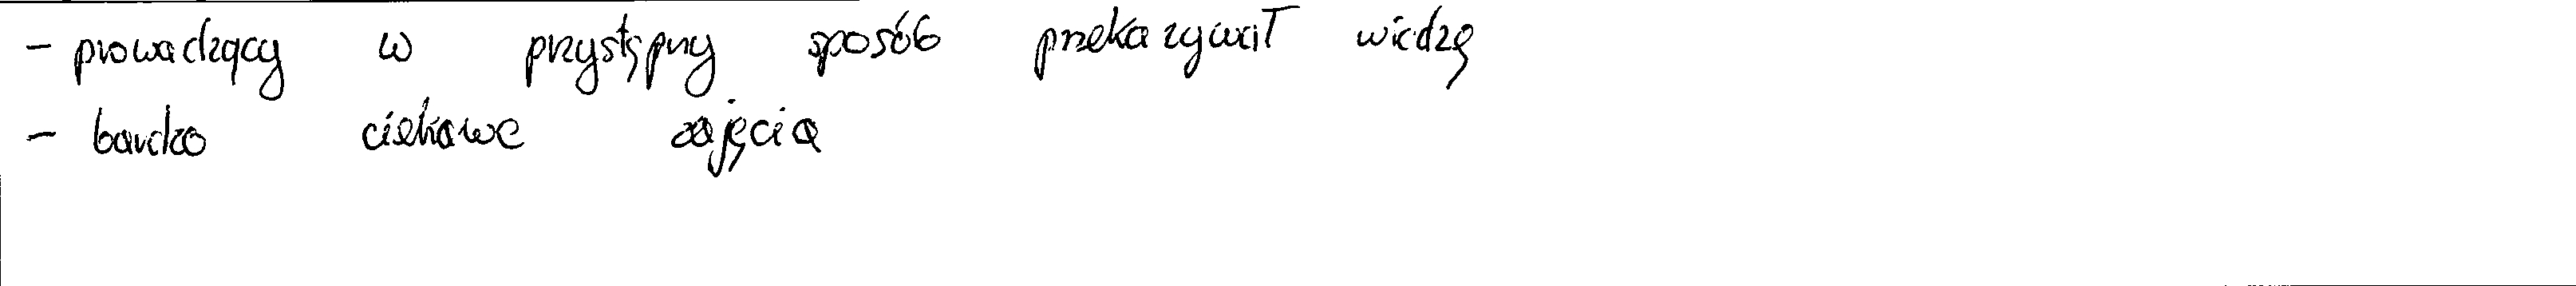 - prowadzący w przystępny sposób przekazywał wiedzę
- bardzo ciekawe zajęcia